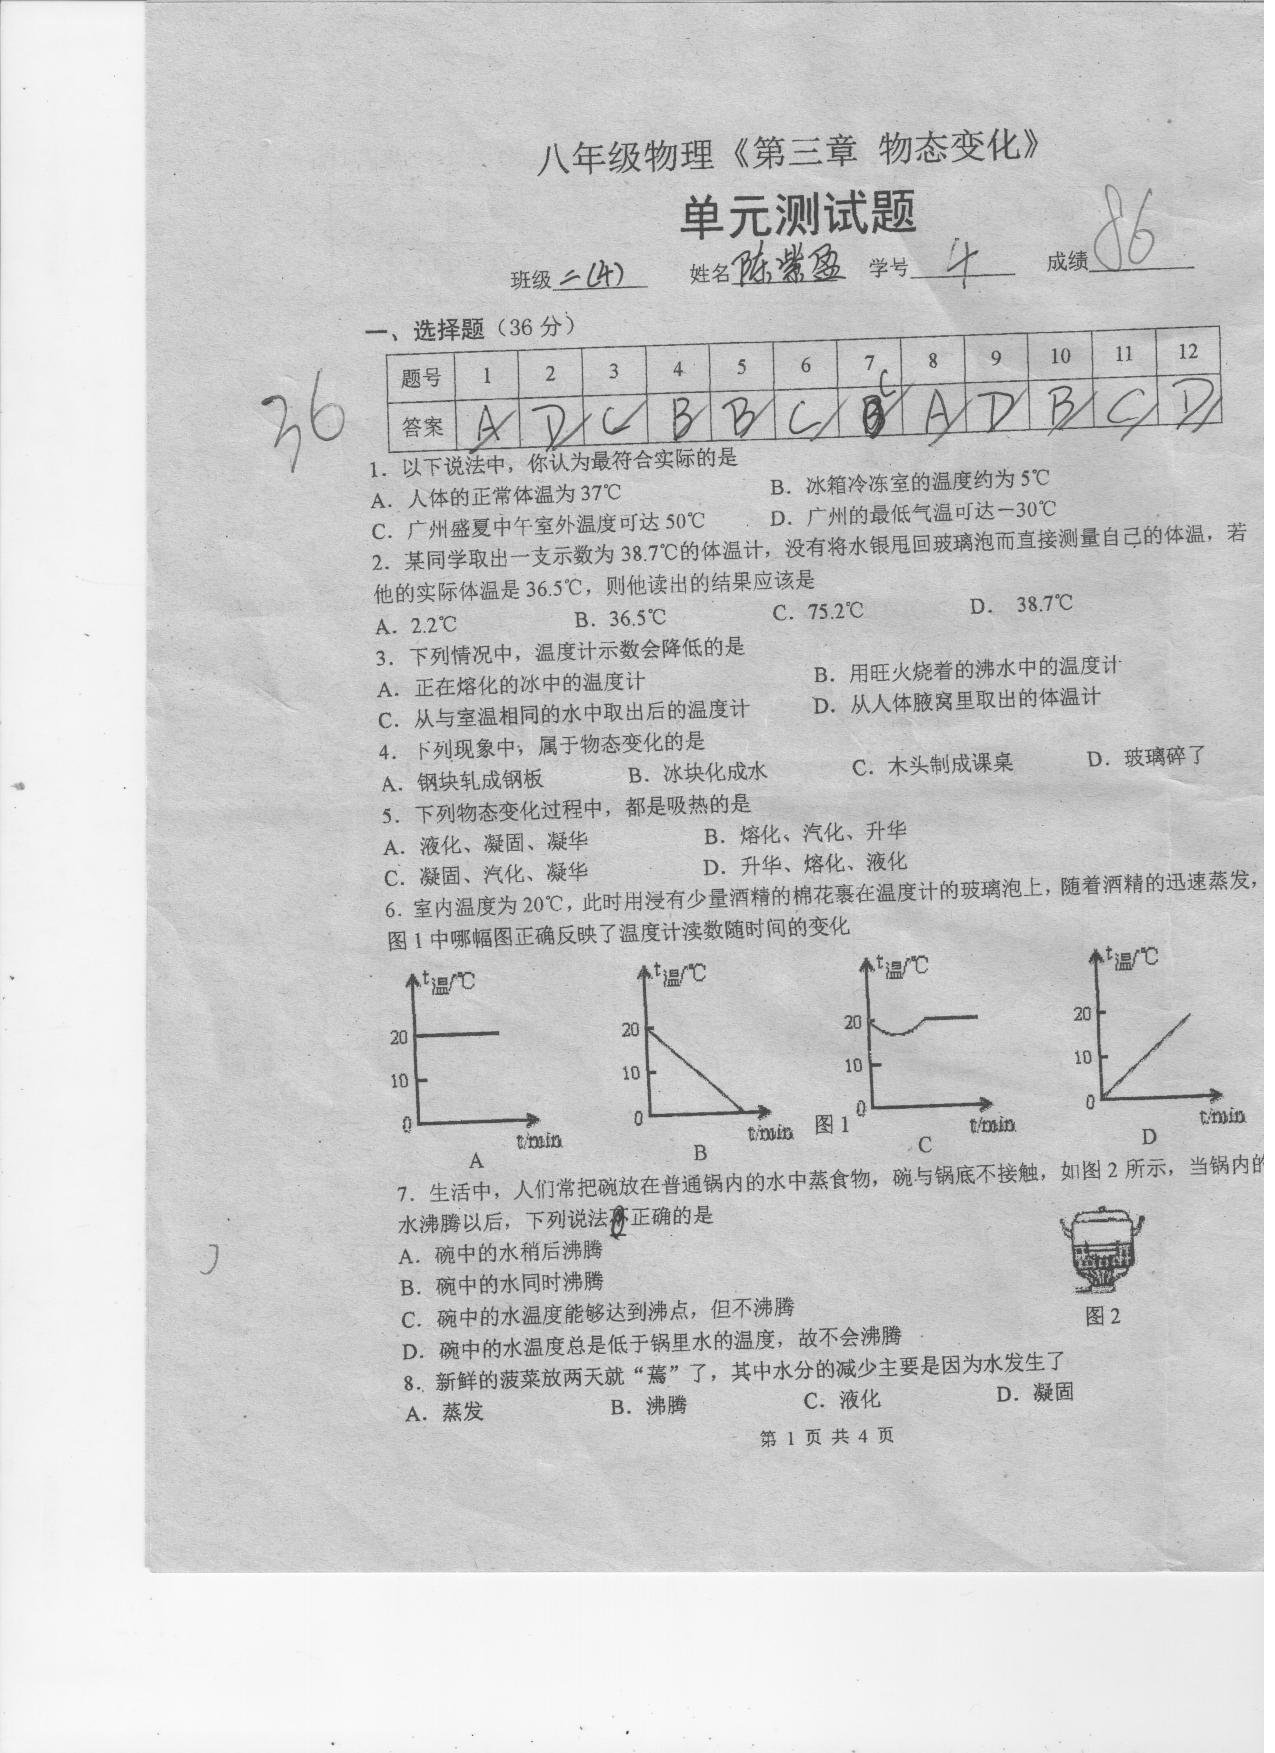 八年级物理《第三章 物态变化》
单元测试题
班级二(4) 姓名陈紫盈 学号4 成绩86
一、选择题（36 分）
36
题号 1 2 3 4 5 6 7 8 9 10 11 12
答案 A D C B B C C A D B C D
1．以下说法中，你认为最符合实际的是
A．人体的正常体温为 37℃ B．冰箱冷冻室的温度约为 5℃
C．广州盛夏中午室外温度可达 50℃ D．广州的最低气温可达－30℃
2．某同学取出一支示数为 38.7℃的体温计，没有将水银甩回玻璃泡而直接测量自己的体温，若
他的实际体温是 36.5℃，则他读出的结果应该是
A．2.2℃ B．36.5℃ C．75.2℃ D． 38.7℃
3．下列情况中，温度计示数会降低的是
A．正在熔化的冰中的温度计 B．用旺火烧着的沸水中的温度计
C．从与室温相同的水中取出后的温度计 D．从人体腋窝里取出的体温计
4．下列现象中，属于物态变化的是
A．钢块轧成钢板 B．冰块化成水 C．木头制成课桌 D．玻璃碎了
5．下列物态变化过程中，都是吸热的是
A．液化、凝固、凝华 B．熔化、汽化、升华
C．凝固、汽化、凝华 D．升华、熔化、液化
6．室内温度为 20℃，此时用浸有少量酒精的棉花裹在温度计的玻璃泡上，随着酒精的迅速蒸发，
图 1 中哪幅图正确反映了温度计读数随时间的变化
t温/℃ t温/℃ t温/℃ t温/℃
20 20 20 20
10 10 10 10
0 0 0 0
t/min t/min t/min t/min
图 1
A B C D
7．生活中，人们常把碗放在普通锅内的水中蒸食物，碗与锅底不接触，如图 2 所示，当锅内的
水沸腾以后，下列说法正确的是
A．碗中的水稍后沸腾
B．碗中的水同时沸腾
C．碗中的水温度能够达到沸点，但不沸腾
D．碗中的水温度总是低于锅里水的温度，故不会沸腾
图 2
8．新鲜的菠菜放两天就“蔫”了，其中水分的减少主要是因为水发生了
A．蒸发 B．沸腾 C．液化 D．凝固
第 1 页 共 4 页